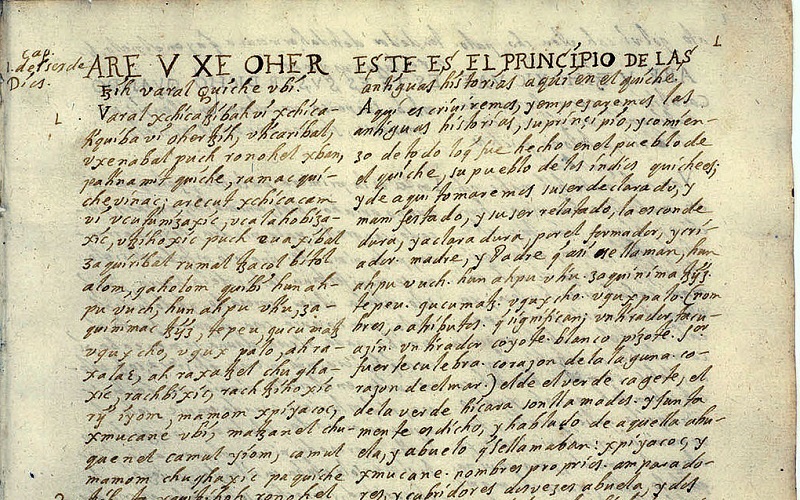 cap.
1. del ser de
Dios.
1
ARE V XE OHER
tzih varal Quiche vbi.
Varal xchicatzibah vi xchica-
tiquiba vi ojer tzih, vticaribal,
vxenabal puch ronohel xban,
pa tinamit quiche, ramac qui-
che vinac; arecut xchicacam
vi vcutunizaxic, vcalahobiza-
xic, vtzihoxic puch euaxibal
zaquiribal rumal tzacol bitol
alom, qaholom quibi hun ah-
pu vuch, hun ahpu vtiu, za-
quinimac tzyz, tepeu, qucumatz
vqux cho, vqux palo, ah ra-
xalac, ah raxatzel chugha-
xic, rachbixic, rachtzihoxic
rij iyom, mamom xpiyacoc,
xmucane vbi, matzanel chu-
quenel camul yiom, camul
mamom chughaxic pa quiche
ESTE ES EL PRINCIPIO DE LAS
antiguas historias aqui en el quiche.
Aqui escriuiremos, y empeçaremos las
antiguas historias, su principio, y comien-
zo de todo loq fue hecho en el pueblo de
el quiche, su pueblo de los indios quichees;
y de aqui tomaremos su ser declarado, y
manifestado, y su ser relatado, la esconde
dura, y aclaradura, por el formador, y cri-
ador. madre, y Padre q asi se llaman, hun
ahpu vuch. hun ahpu vtiu. zaquinima tzyz.
tepeu. qucumatz. vqux cho. vqux palo. (nom
bres, o atributos. q significan; vn tirador tacu-
azin. vn tirador coyote. blanco pizote. sor
fuerte culebra. corazon de la laguna. co-
razon de el mar.) el de el verde cagete, el
de la verde hicara son llamados. y junta
mente es dicho, y hablado de aquella abu-
ela, y abuelo q se llamaban: xpiyacoc, y
xmucane. nombres proprios. amparado-
res, y cubridores dos vezes abuela, y dos